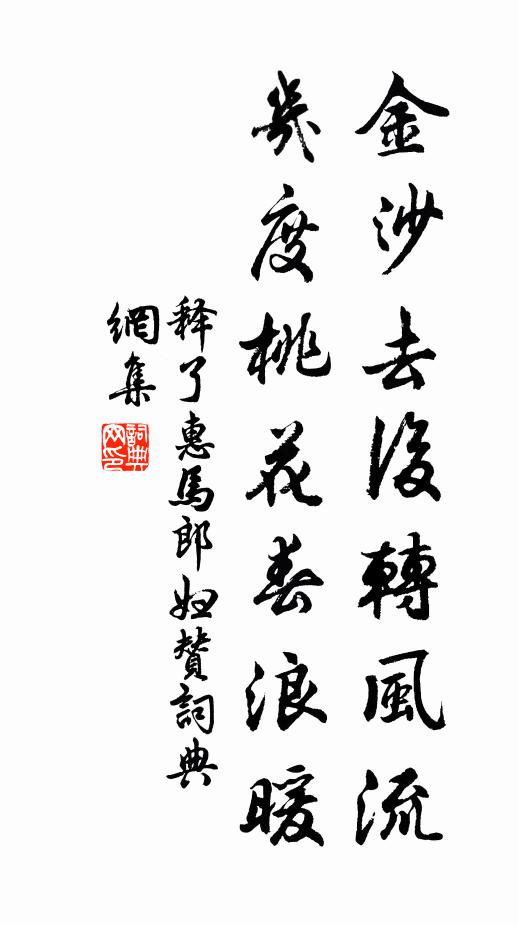 金沙去後轉風流
幾度桃花春浪暖
释了惠馬郎婦贊詞典
網集
詞典网印